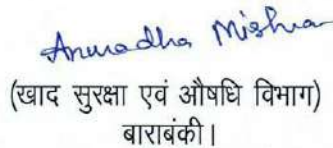 Anuradha Mishra
(खाद सुरक्षा एवं औषधि विभाग)
बाराबंकी।